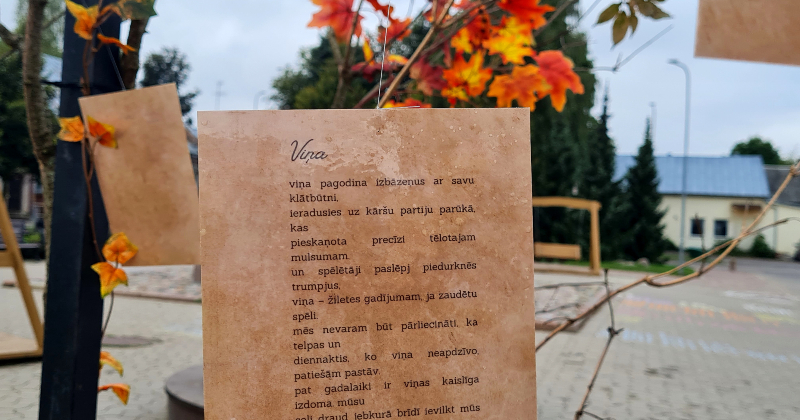 Viņa
viņa pagodina izbāzeņus ar savu
klātbūtni,
ieradusies uz kāršu partiju parūkā,
kas
pieskaņota precīzi tēlotajam
mulsumam.
un spēlētāji paslēpj piedurknēs
trumpjus,
viņa – žiletes gadījumam, ja zaudētu
spēli.
mēs nevaram būt pārliecināti, ka
telpas un
diennaktis, ko viņa neapdzīvo,
patiešām pastāv.
pat gadalaiki ir viņas kaislīga
izdoma, mūsu
draud jebkurā brīdī ievilkt mūs